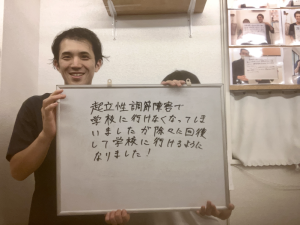 起立性調節障害で
学校に行けなくなってしま
いましたが徐々に回復
して学校に行けるように
なりました！